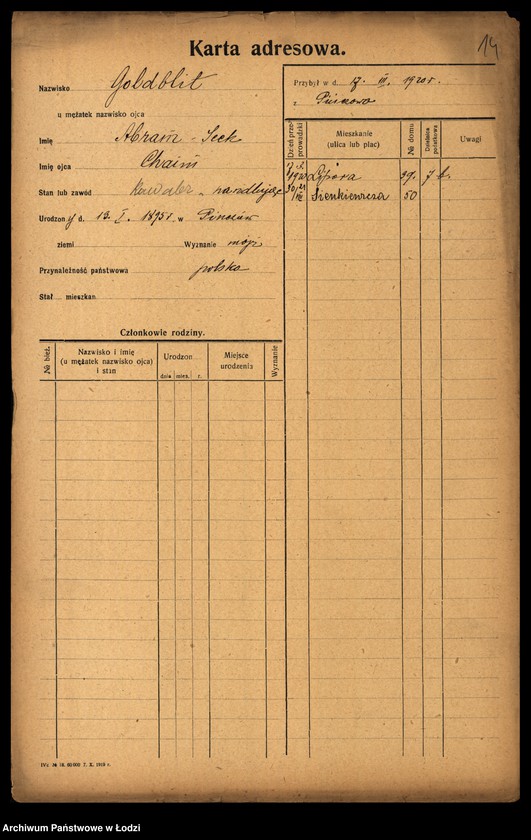 14
Karta adresowa.
Nazwisko Goldblit
u mężatek nazwisko ojca
Imię Abram - Icek
Imię ojca Chaim
Stan lub zawód kawaler - handlując
Urodzon y d. 13. I. 1895 r. w Pinczów
ziemi Wyznanie mojż.
Przynależność państwowa polska
Stał mieszkan.
Przybył w d. 17. III. 1920 r.
z Pinczowa
Dzień przeprowadzki
Mieszkanie
(ulica lub plac)
№ domu
Dzielnica podatkowa
Uwagi
1920 39. 7 b.
Sienkiewicza 50
Członkowie rodziny.
№ bież.
Nazwisko i imię
(u mężatek nazwisko ojca)
i stan
Urodzon
dnia mies. r.
Miejsce
urodzenia
Wyznanie
IVz № 18. 60 000 7. X. 1919 r.
Archiwum Państwowe w Łodzi